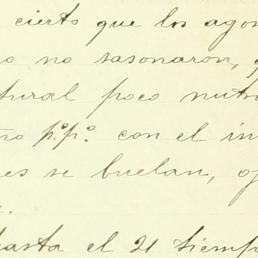 cierto que los agon
no sasonaron,
tural poco nutri
no pº.pº. con el in
es se buelan, 
hasta el 21 siemp